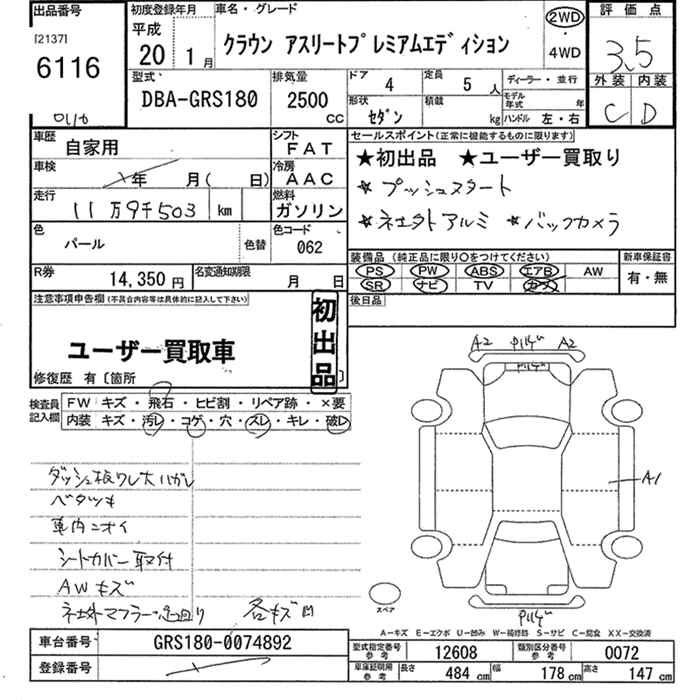 出品番号 初度登録年月 車名・グレード 評価点
[2137] 平成
6116 20年 1月 クラウン アスリートプレミアムエディション 2WD・4WD 3.5
型式 排気量 ドア 4 定員 5人 ディーラー・並行 外装 内装
DBA-GRS180 2500cc 形状 セダン 積載 kg モデル年式 年 ハンドル 左・右 C D
車歴 自家用 シフト FAT セールスポイント(正常に機能するものに限ります)
車検 年 月( 日) 冷房 AAC ★初出品 ★ユーザー買取り
走行 11万9千503 km 燃料 ガソリン ☆プッシュスタート
☆ネエタトアルミ ☆バックカメラ
色 パール 色替 色コード 062
装備品(純正品に限り○をつけてください) 新車保証書
R券 14,350円 名変通知期限 月 日 PS PW ABS エアB AW 有・無
SR ナビ TV カーフ
注意事項申告欄(不具合内容等は具体的に記入して下さい) 初出品 後日品
ユーザー買取車
修復歴 有〔箇所 〕
検査員記入欄 FW キズ・飛石・ヒビ割・リペア跡・×要
内装 キズ・汚レ・コゲ・穴・スレ・キレ・破レ
A2 A2
ダッシュ板ワレ大ハガレ A1
ベタツキ
車内ニオイ
シートカバー取付
AWキズ
社外マフラー 各キズ凹
スペア
A−キズ E−エクボ U−凹み W−補修跡 S−サビ C−腐食 XX−交換済
車台番号 GRS180-0074892 型式指定番号 参考 12608 類別区分番号 参考 0072
登録番号 車庫証明用 参考 長さ 484cm 幅 178cm 高さ 147cm